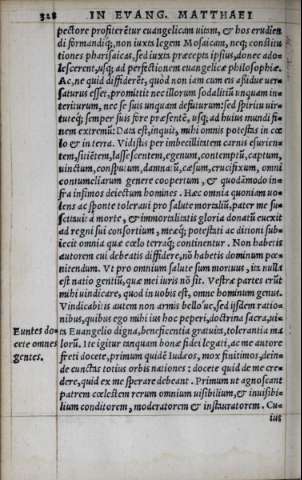 328 IN EVANG. MATTHAEI
pectore profiterētur euangelicam uitam, & hos erudien
di formandiq́;, non iuxta legem Mosaicam, neq; constitu
tiones pharisaicas, sed iuxta præcepta ipsius, donec ado-
lescerent, usq; ad perfectionem euangelicæ philosophiæ.
Ac, ne quid diffiderēt, quòd non iam cum eis assidue uer-
saturus esset, promittit nec illorum sodalitiū unquam in-
teriturum, nec se suis unquam defuturum: sed spiritu uir-
tuteq́; semper suis fore præsentē, usq; ad huius mundi fi-
nem extremū: Data est, inquit, mihi omnis potestas in cœ
lo & in terra. Vidistis per imbecillitatem carnis esurien-
tem, sitiētem, lassescentem, egenum, contemptū, captum,
uinctum, consputum, damnatū, cæsum, crucifixum, omni
contumeliarum genere coopertum, & quodāmodo in-
fra infimos deiectum homines. Hæc omnia quoniam uo-
lens ac sponte toleraui pro salute mortaliū, pater me su-
scitauit à morte, & immortalitatis gloria donatū euexit
ad regni sui consortium, meæq́; potestati ac ditioni sub-
iecit omnia quæ cœlo terraq́; continentur. Non habetis
autorem cui debeatis diffidere, nō habetis dominum pœ-
nitendum. Vt pro omnium salute sum mortuus, ita nulla
est natio gentiū, quæ mei iuris nō sit. Vestræ partes erūt
mihi uindicare, quod in uobis est, omne hominum genus.
Vindicabitis autem non armis bello ue, sed ijsdem ratio-
nibus, quibus ego mihi ius hoc peperi, doctrina sacra, ui-
Euntes do- ta Euangelio digna, beneficentia gratuita, tolerantia ma
cete omnes lorū. Ite igitur tanquam bonæ fidei legati, ac me autore
gentes. freti docete, primum quidē Iudæos, mox finitimos, dein-
de cunctas totius orbis nationes: docete quid de me cre-
dere, quid ex me sperare debeant. Primum ut agnoscant
patrem cœlestem rerum omnium uisibilium, & inuisibi-
lium conditorem, moderatorem & instauratorem. Cu-
ius